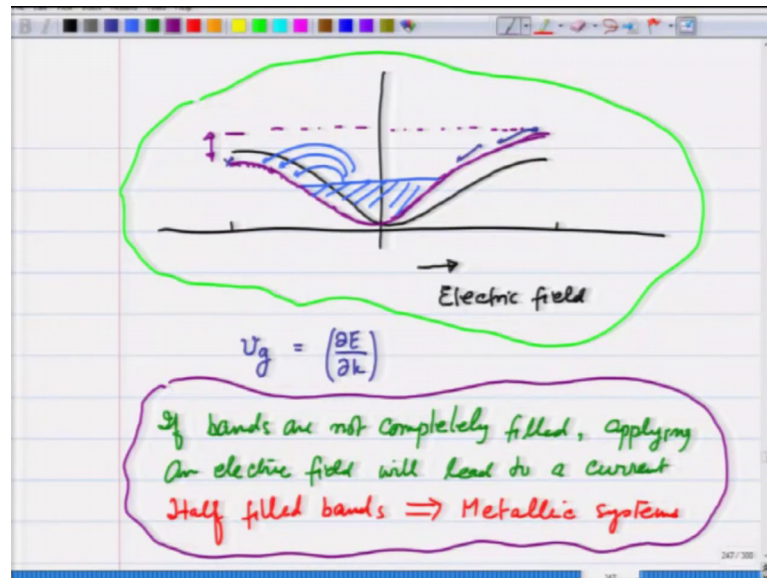 Electric field
υg = (∂E/∂k)
If bands are not completely filled, applying
an electric field will lead to a current
Half filled bands ⇒ Metallic systems
247 / 300
247